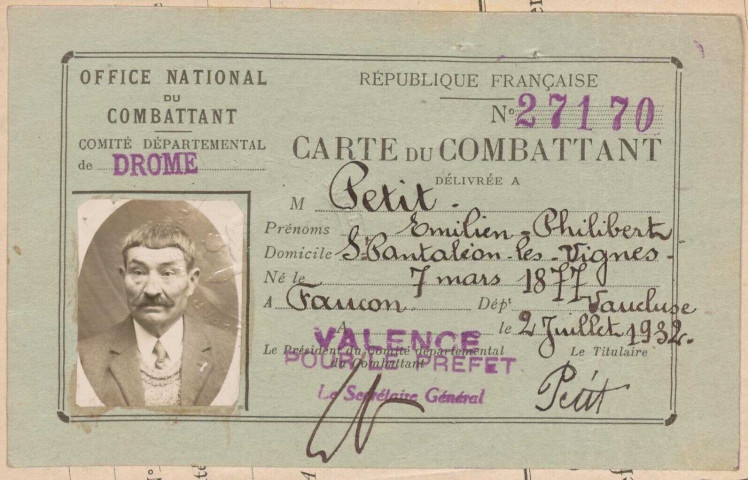 OFFICE NATIONAL
DU
COMBATTANT
COMITÉ DÉPARTEMENTAL
de DROME
RÉPUBLIQUE FRANÇAISE
N° 27170
CARTE DU COMBATTANT
DÉLIVRÉE A
M Petit.
Prénoms Emilien-Philibert
Domicile St Pantaléon-les-Vignes.
Né le 7 mars 1877
A Faucon Dépt Vaucluse
A VALENCE le 2 Juillet 1932.
Le Président du Comité départemental
du Combattant
POUR LE PREFET
Le Secrétaire Général
Le Titulaire
Petit